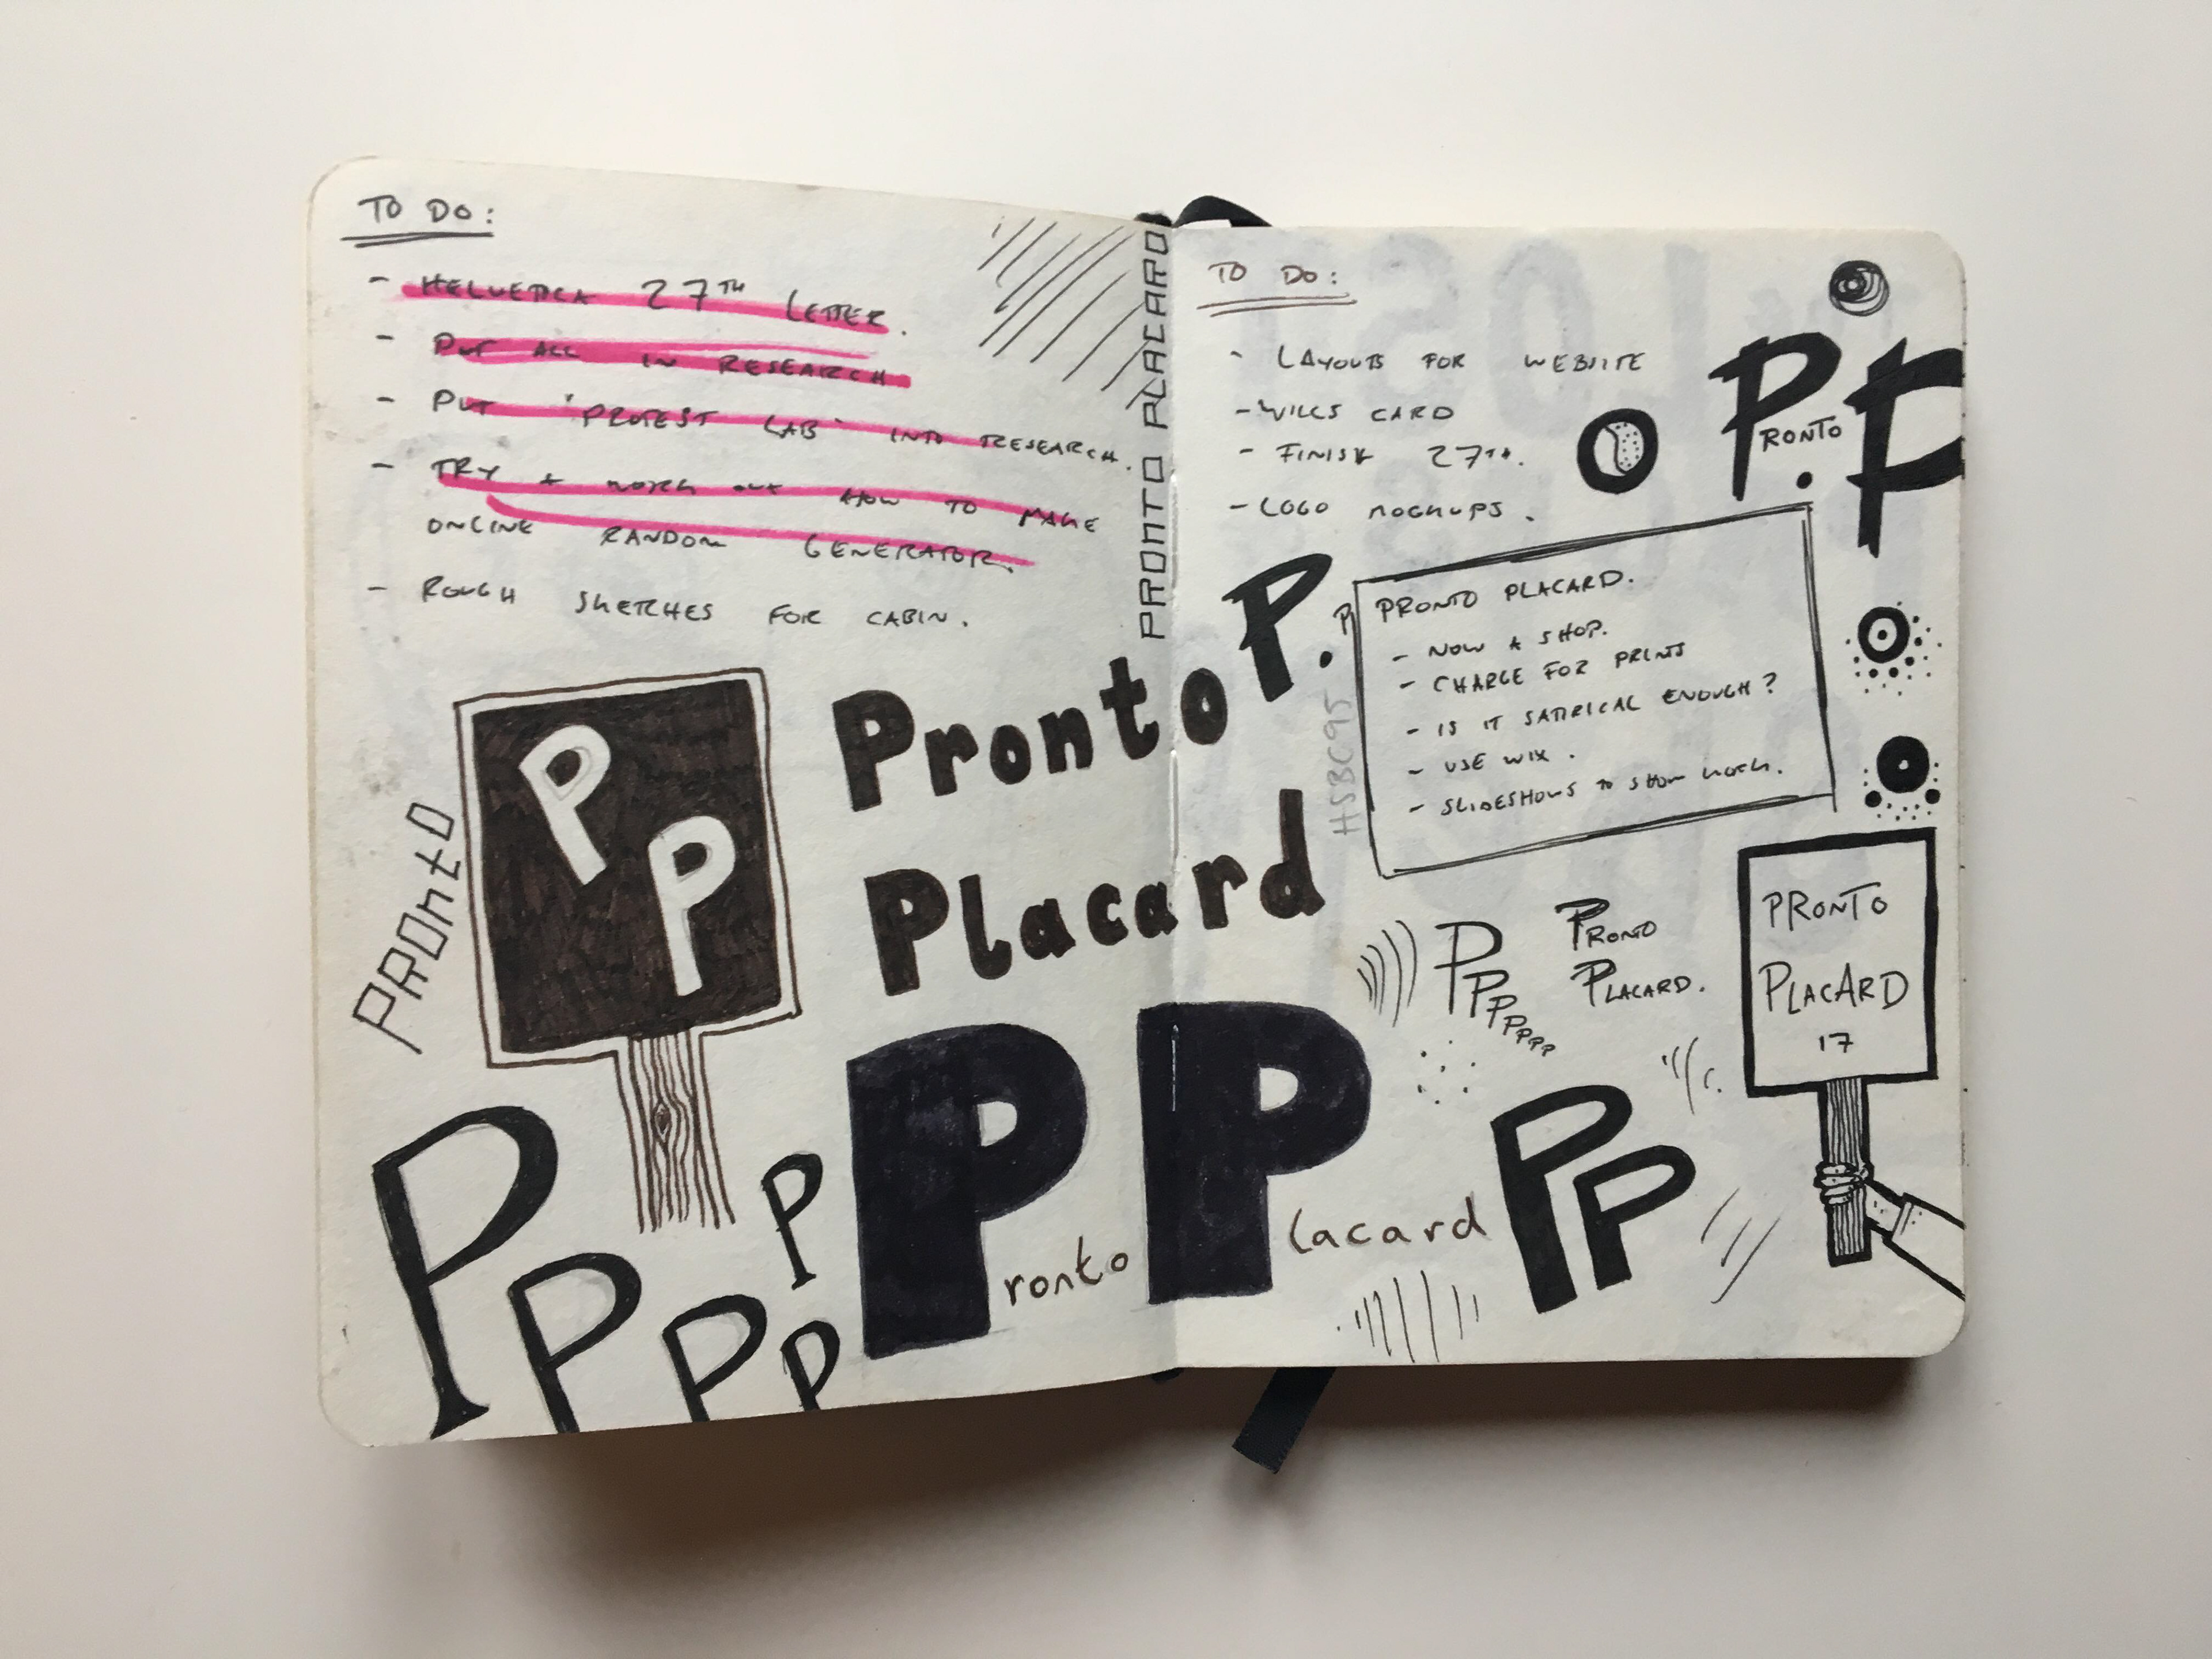 TO DO:
- HELVETICA 27TH LETTER.
- PUT ALL IN RESEARCH
- PUT 'PROTEST LAB' INTO RESEARCH.
- TRY + WORK OUT HOW TO MAKE
ONLINE RANDOM GENERATOR.
- ROUGH SKETCHES FOR CABIN.
PRONTO PLACARD
PRONTO
PP
Pronto
Placard
P
P
P
P
P
Pronto Placard
TO DO:
- LAYOUTS FOR WEBSITE
- WILLS CARD
- FINISH 27TH.
- LOGO MOCKUPS.
PRONTO P.
P
P.
P
PRONTO PLACARD.
- NOW A SHOP.
- CHARGE FOR PRINTS
- IS IT SATIRICAL ENOUGH?
- USE WIX.
- SLIDESHOWS TO SHOW WORK.
HSBC95
PPPPPPP
PRONTO
PLACARD.
PP
PRONTO
PLACARD
17